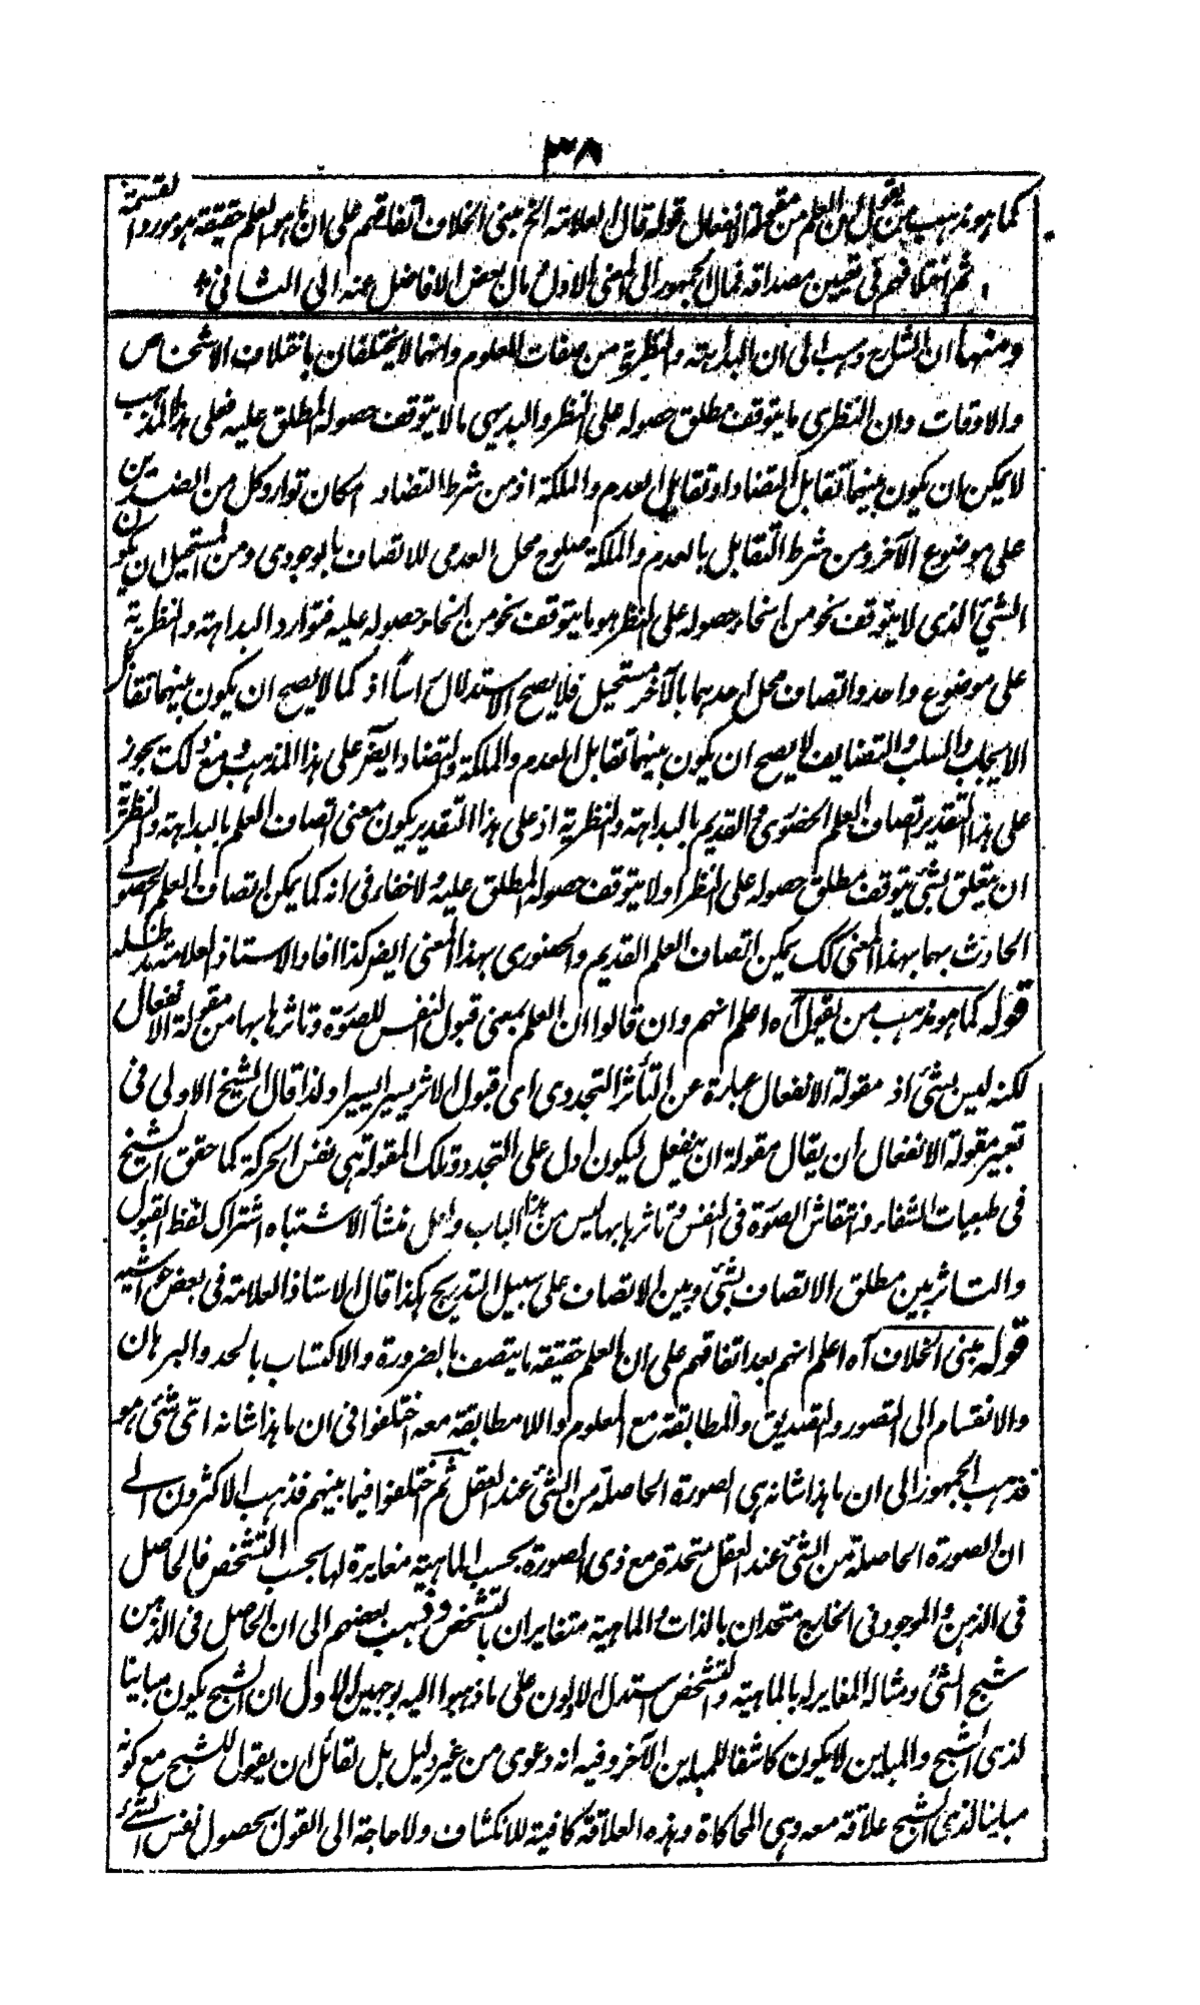 ٣٨
كما هو مذهب من يقول ان العلم من مقولة الانفعال قوله قال العلامة الخ مبنى الخلاف اتفاقهم على ان ما هو العلم حقيقة هو مورد القسمة
ثم اختلافهم فى تعيين مصداقه فمال الجمهور الى المعنى الاول و مال بعض الافاضل عنه الى الثانى
ومنها ان الشارح ذهب الى ان البداهة والنظرية من صفات المعلوم وانهما لا يختلفان باختلاف الاشخاص
والاوقات وان النظرى ما يتوقف مطلق حصوله على النظر والبديهى ما لا يتوقف حصوله المطلق عليه فعلى هذا المذهب
لا يمكن ان يكون بينهما تقابل التضاد او تقابل العدم والملكة اذ من شرط التضاد امكان توارد كل من الضدين
على موضوع الآخر ومن شرط التقابل بالعدم والملكة صلوح محل العدمى للاتصاف بالوجودى ومن المستحيل ان يكون
الشئ الذى لا يتوقف نحو من انحاء حصوله على النظر هو ما يتوقف نحو من انحاء حصوله عليه فتوارد البداهة والنظرية
على موضوع واحد واتصاف محل احدهما بالآخر مستحيل فلا يصح الاستدلال اساً اذ كما لا يصح ان يكون بينهما تقابل
الايجاب والسلب والتضايف لا يصح ان يكون بينهما تقابل العدم والملكة والتضاد ايضا على هذا المذهب ومنع ذلك يجوز
على هذا التقدير اتصاف العلم الحضورى والقديم بالبداهة والنظرية اذ على هذا التقدير يكون معنى اتصاف العلم بالبداهة والنظرية
ان يتعلق بشئ يتوقف مطلق حصوله على النظر او لا يتوقف حصوله المطلق عليه ولا خفاء فى انه كما يمكن اتصاف العلم الحصولى
الحادث بهما بهذا المعنى كك يمكن اتصاف العلم القديم والحضورى بهذا المعنى ايضا كذا افاد الاستاذ العلامة مد ظله
قوله كما هو مذهب من يقول آه اعلم انهم وان قالوا ان العلم بمعنى قبول النفس للصورة وتاثرها بها من مقولة الانفعال
لكنه ليس بشئ اذ مقولة الانفعال عبارة عن التأثر التجددى اى قبول الاثر يسيرا يسيرا ولذا قال الشيخ الاولى فى
تعبير مقولة الانفعال ان يقال مقولة ان ينفعل ليكون ادل على التجدد وتلك المقولة هى نفس الحركة كما حقق الشيخ
فى طبعيات الشفاء فانتقاش الصورة فى النفس وتاثرها بها ليس من هذا الباب ولعل منشأ الاشتباه اشتراك لفظ القبول
والتاثر بين مطلق الاتصاف بشئ وبين الاتصاف على سبيل التدريج هكذا قال الاستاذ العلامة فى بعض حواشيه
قوله مبنى الخلاف آه اعلم انهم بعد اتفاقهم على ان العلم حقيقة ما يتصف بالضرورة والاكتساب بالحد والبرهان
والانقسام الى التصور والتصديق والمطابقة مع المعلوم واللا مطابقة معه اختلفوا فى ان ما هذا شانه اىّ شئ هو
فذهب الجمهور الى ان ما هذا شانه هى الصورة الحاصلة من الشئ عند العقل ثم اختلفوا فيما بينهم فذهب الاكثرون الى
ان الصورة الحاصلة من الشئ عند العقل متحدة مع ذى الصورة بحسب الماهية مغايرة لها بحسب التشخص فالحاصل
فى الذهن والموجود فى الخارج متحدان بالذات والماهية متغايران بالتشخص وذهب بعضهم الى ان الحاصل فى الذهن
شبح الشئ ومثاله المغاير له بالماهية والتشخص استدل الاولون على ما ذهبوا اليه بوجهين الاول ان الشبح يكون مباينا
لذى الشبح والمباين لا يكون كاشفا للمباين الآخر وفيه انه دعوى من غير دليل بل لقائل ان يقول للشبح مع كونه
مباينا لذى الشبح علاقة معه وهى المحاكاة وهذه العلاقة كافية للانكشاف ولا حاجة الى القول بحصول نفس الشئ